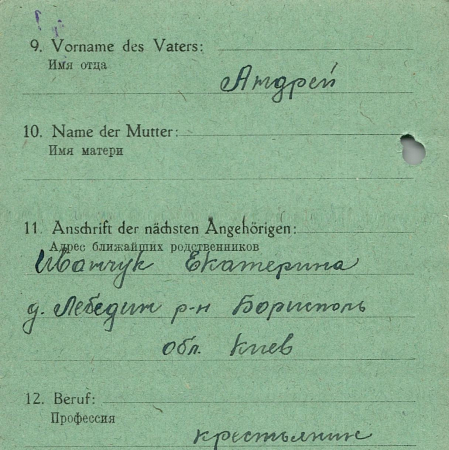 9. Vorname des Vaters:
Имя отца
Андрей
10. Name der Mutter:
Имя матери
11. Anschrift der nächsten Angehörigen:
Адрес ближайших родственников
Иванчук Екатерина
д. Лебедин р-н Борисполь
обл. Киев
12. Beruf:
Профессия
крестьянин